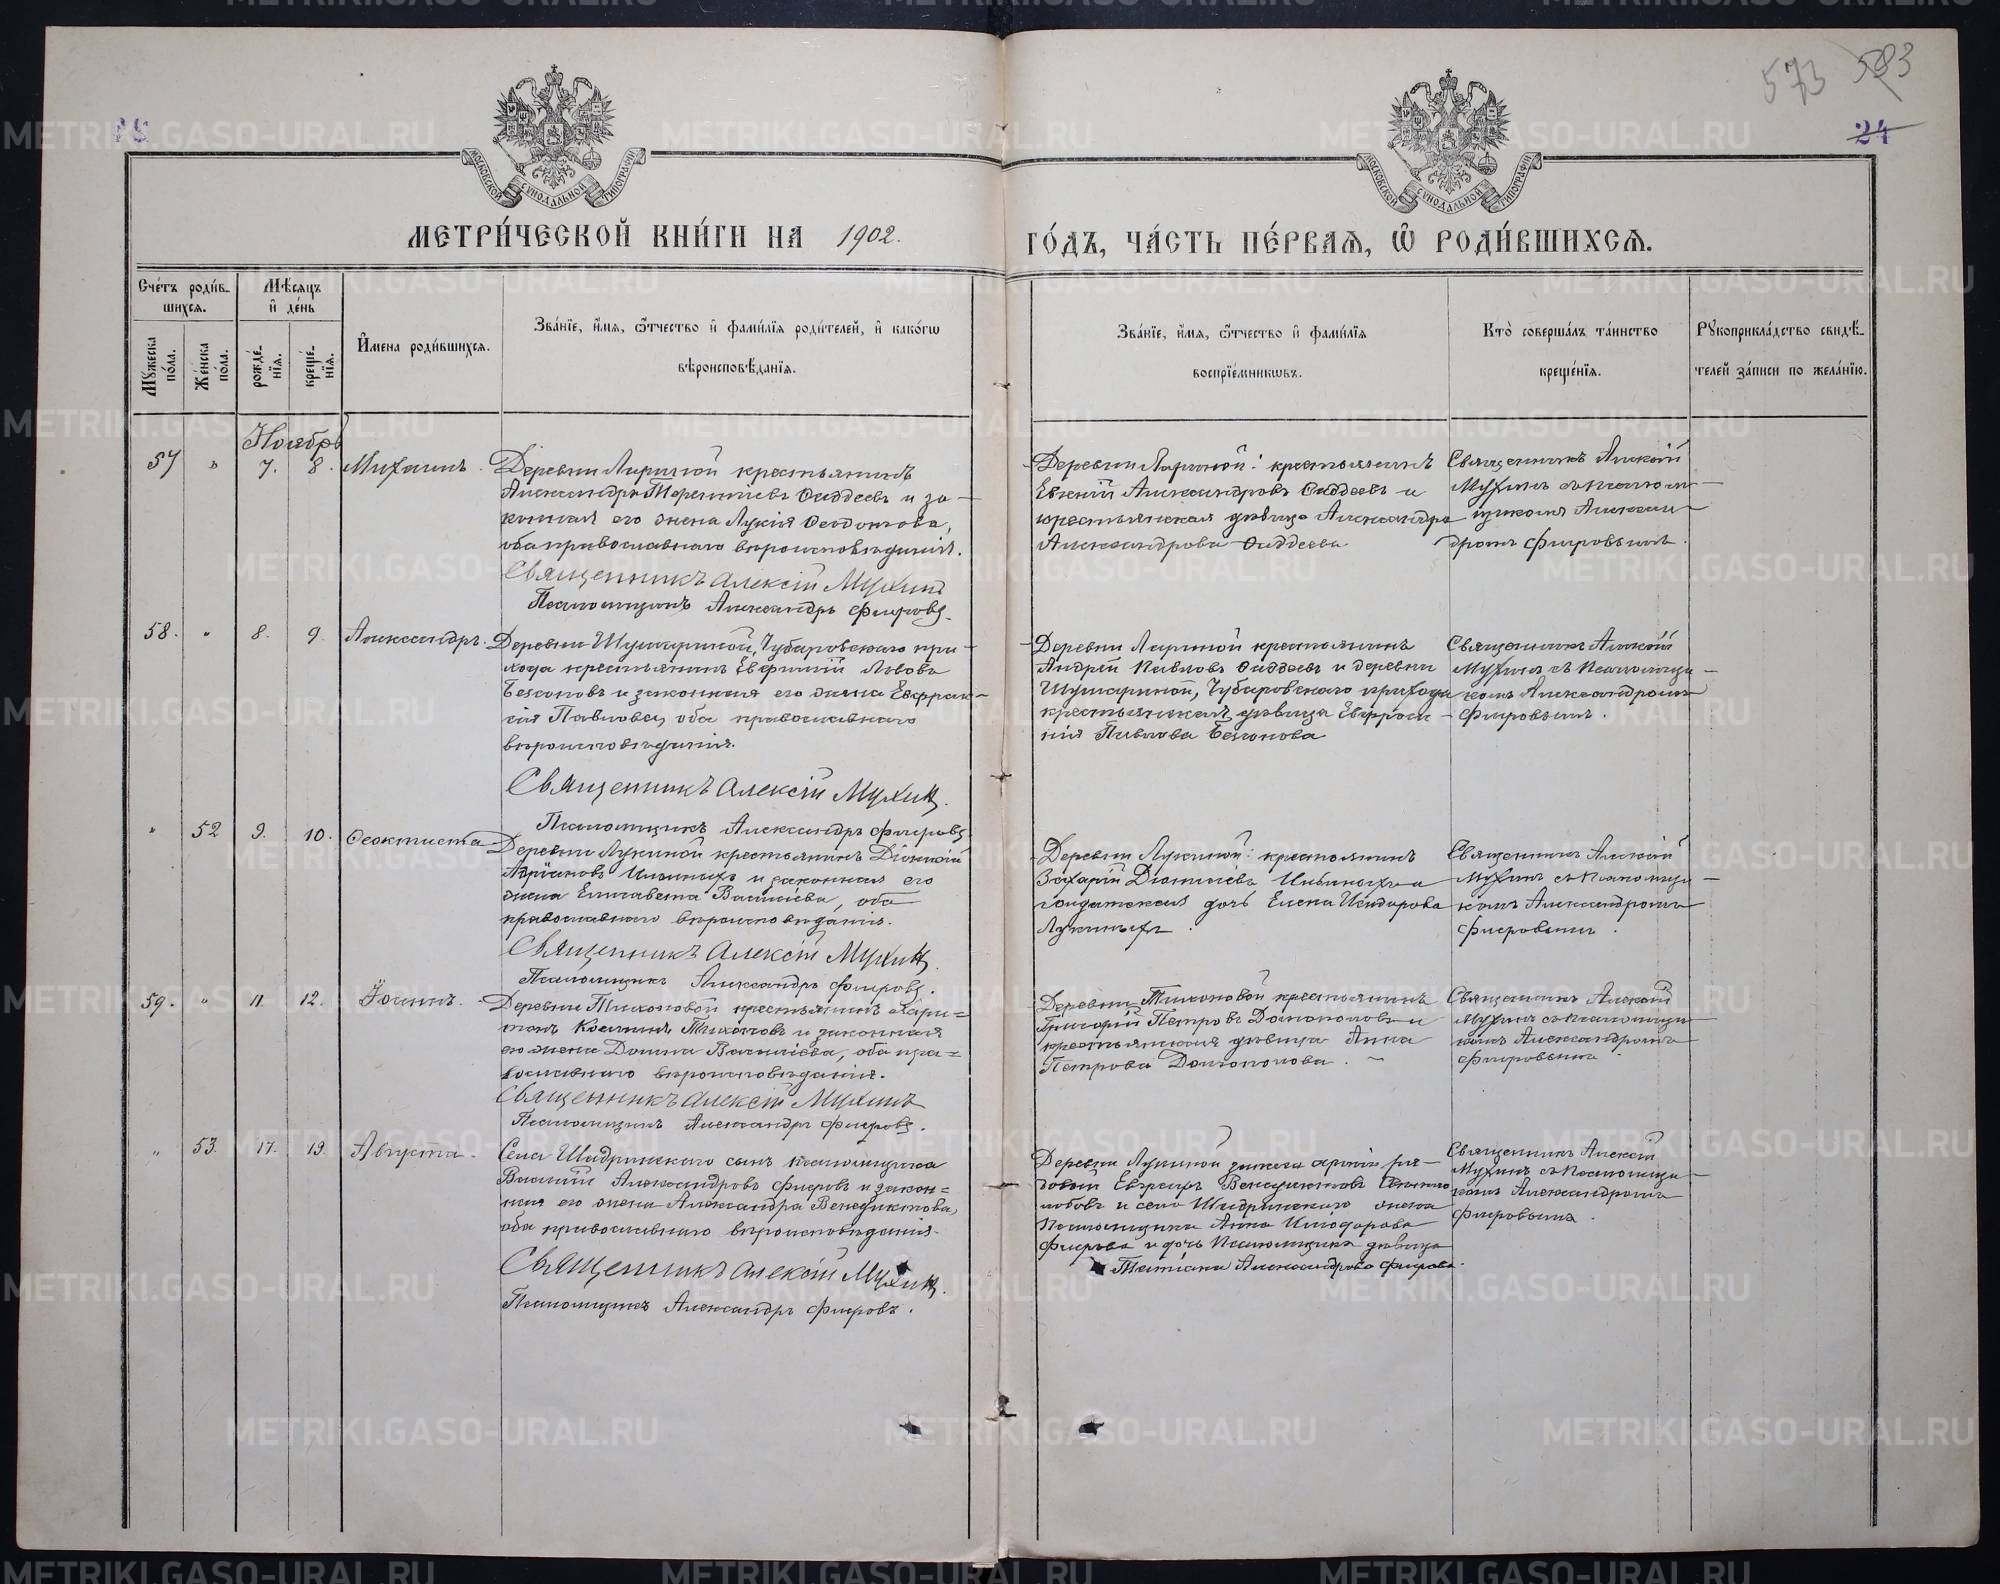 573 583
24
МОСКОВСКОЙ СѴНОДАЛЬНОЙ ТИПОГРАФІИ
МОСКОВСКОЙ СѴНОДАЛЬНОЙ ТИПОГРАФІИ
МЕТРИ́ЧЕСКОЙ КНИ́ГИ НА 1902. ГО́ДЪ, ЧА́СТЬ ПЕ́РВАѦ, Ѡ РОДИ́ВШИХСѦ.
Сче́тъ роди́в-
шихсѧ.
Мꙋ́жеска
по́ла.
Же́нска
по́ла.
Мѣ́сѧцъ
и҆ де́нь
рожде́-
нїѧ.
креще́-
нїѧ.
И҆́мена роди́вшихсѧ.
Зва́нїе, и҆́мѧ, ѻ҆́тчество и҆ фами́лїѧ роди́телей, и҆ како́гѡ
вѣроисповѣ́данїѧ.
Зва́нїе, и҆́мѧ, ѻ҆́тчество и҆ фами́лїѧ
воспрїе́мникѡвъ.
Кто̀ соверша́лъ та́инство
креще́нїѧ.
Рꙋкоприкла́дство свидѣ́-
телей за́писи по жела́нїю.
Ноябрь
57 " 7. 8. Михаилъ.
Деревни Лариной крестьянинъ
Александръ Терентіевъ Ѳаддеевъ и за-
конная его жена Лукія Ѳеодотова,
оба православнаго вѣроисповѣданія.
Священникъ Алексій Мухинъ
Псаломщикъ Александръ Фигровъ.
Деревни Лариной: крестьянинъ
Евгеній Александровъ Ѳаддеевъ и
крестьянская дѣвица Александра
Александрова Ѳаддеева
Священникъ Алексій
Мухинъ съ псалом-
щикомъ Алексан-
дромъ Фигровымъ.
58. " 8. 9. Александръ.
Деревни Шумариной, Чубаровскаго при-
хода крестьянинъ Евфимій Львовъ
Безсоновъ и законная его жена Евфра-
сія Павлова, оба православнаго
вѣроисповѣданія.
Священникъ Алексій Мухинъ.
Псаломщикъ Александръ Фигровъ
Деревни Лариной крестьянинъ
Андрей Павловъ Ѳаддеевъ и деревни
Шумариной, Чубаровскаго прихода
крестьянская дѣвица Евфроси-
нія Павлова Безсонова
Священникъ Алексій
Мухинъ съ Псаломщи-
комъ Александромъ
Фигровымъ.
" 52 9. 10. Ѳеоктиста
Деревни Лукиной крестьянинъ Діонисій
и законная его
жена Елисавета Василіева, оба
православнаго вѣроисповѣданія.
Священникъ Алексій Мухинъ.
Псаломщикъ Александръ Фигровъ.
Деревни Лукиной: крестьянинъ
Захарій Діонисіевъ и
солдатская дочь Елена Исидорова
Лукиныхъ.
Священникъ Алексій
Мухинъ съ псаломщи-
комъ Александромъ
Фигровымъ.
59. " 11. 12. Іоаннъ.
Деревни Тихоновой крестьянинъ Хари-
тонъ Косминъ Тихоновъ и законная
его жена Домна Василіева, оба пра-
вославнаго вѣроисповѣданія.
Священникъ Алексій Мухинъ
Псаломщикъ Александръ Фигровъ.
Деревни Тихоновой крестьянинъ
Григорій Петровъ и
крестьянская дѣвица Анна
Петрова
Священникъ Алексій
Мухинъ съ псаломщи-
комъ Александромъ
Фигровымъ.
" 53. 17. 19. Августа.
Села Шадринскаго сынъ псаломщика
Василій Александровъ Фигровъ и закон-
ная его жена Александра Венедиктова,
оба православнаго вѣроисповѣданія.
Священникъ Алексій Мухинъ.
Псаломщикъ Александръ Фигровъ.
Деревни Лукиной
Венедиктовъ
и села Шадринскаго жена
Псаломщика Анна Исидорова
Фигрова и дочь Псаломщика дѣвица
Татіана Александрова Фигрова.
Священникъ Алексій
Мухинъ съ Псаломщи-
комъ Александромъ
Фигровымъ.
METRIKI.GASO-URAL.RU